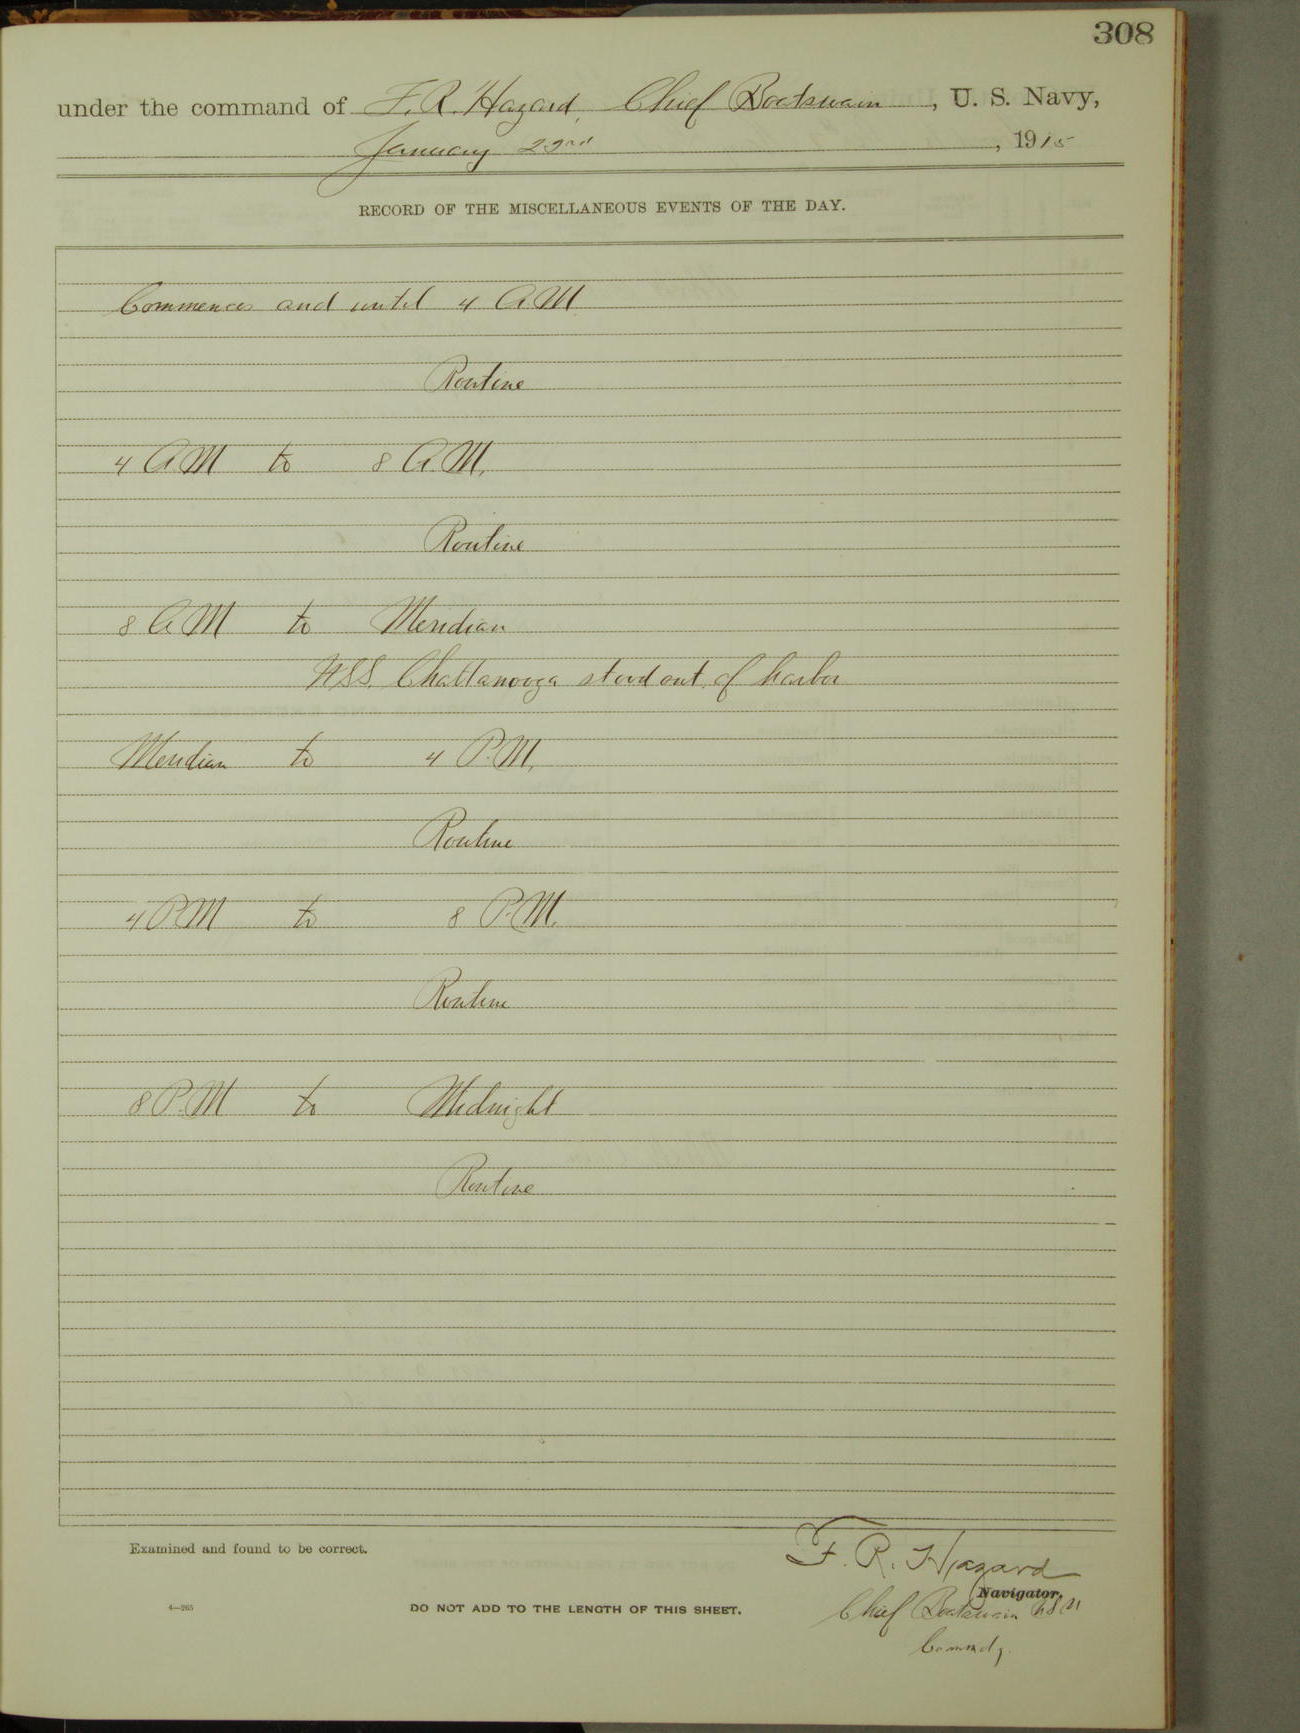 308
under the command of F. R. Hazard, Chief Boatswain, U. S. Navy,
January 23rd, 1915
RECORD OF THE MISCELLANEOUS EVENTS OF THE DAY.
Commences and until 4 A.M.
Routine
4 A M to 8 A. M.
Routine
8 A M to Meridian
U.S.S. Chattanooga stood out of harbor
Meridian to 4 P.M.
Routine
4 P.M to 8 P.M.
Routine
8 P.M to Midnight
Routine
Examined and found to be correct.
F. R. Hazard
Navigator.
4—265
DO NOT ADD TO THE LENGTH OF THIS SHEET.
Chief Boatswain U S N
Commdg.